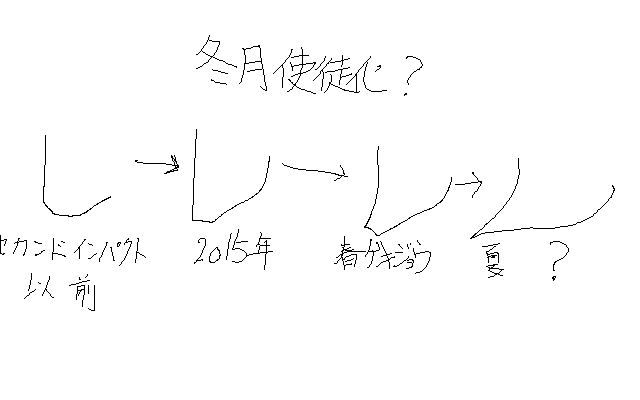 冬月使徒化?
セカンドインパクト
以前
2015年
春ゲキジョウ
夏 ?